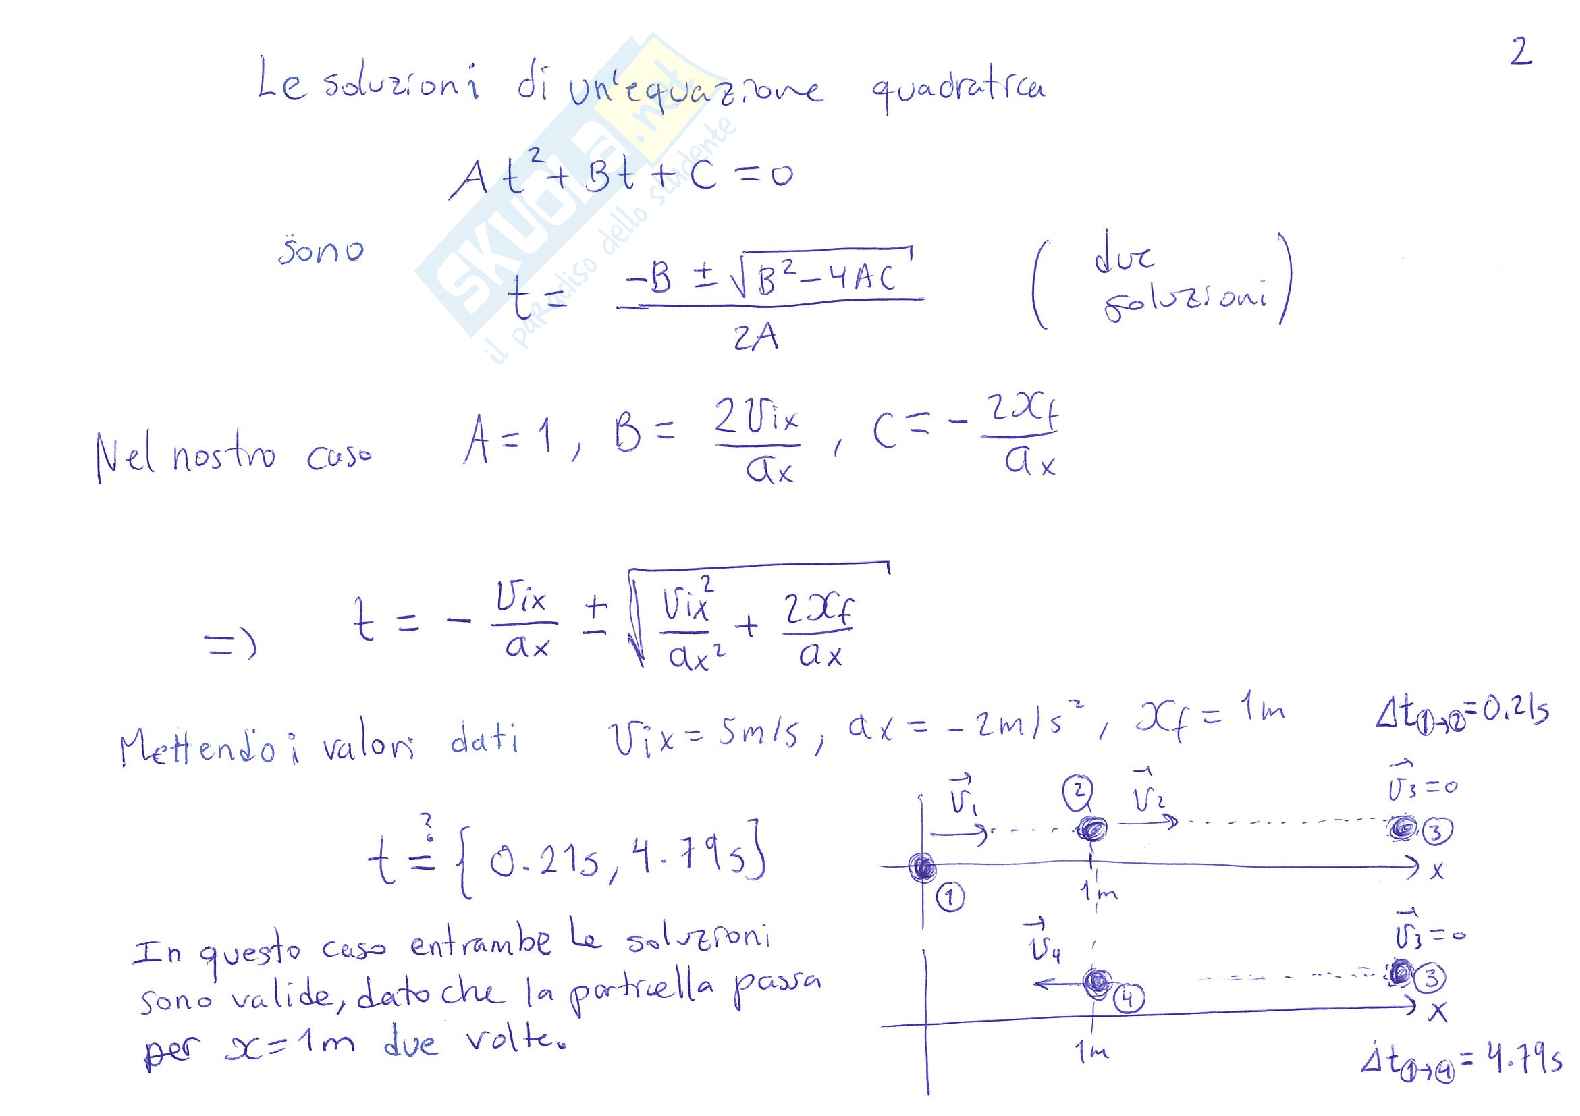 2
Le soluzioni di un'equazione quadratica
At² + Bt + C = 0
sono
t = (-B ± √(B² - 4AC)) / 2A
( due soluzioni )
Nel nostro caso A = 1, B = 2Vix / ax, C = - 2xf / ax
=> t = - Vix / ax ± √(Vix² / ax² + 2xf / ax)
Mettendo i valori dati Vix = 5m/s, ax = -2m/s², xf = 1m
Δt①→② = 0.21s
t ?= { 0.21s, 4.79s }
In questo caso entrambe le soluzioni
sono valide, dato che la particella passa
per x = 1m due volte.
V⃗1 ② V⃗2 V⃗3 = 0
③
① 1m x
V⃗4 V⃗3 = 0
④ ③
1m x
Δt①→④ = 4.79s
SKUOLA.net
il paradiso dello studente